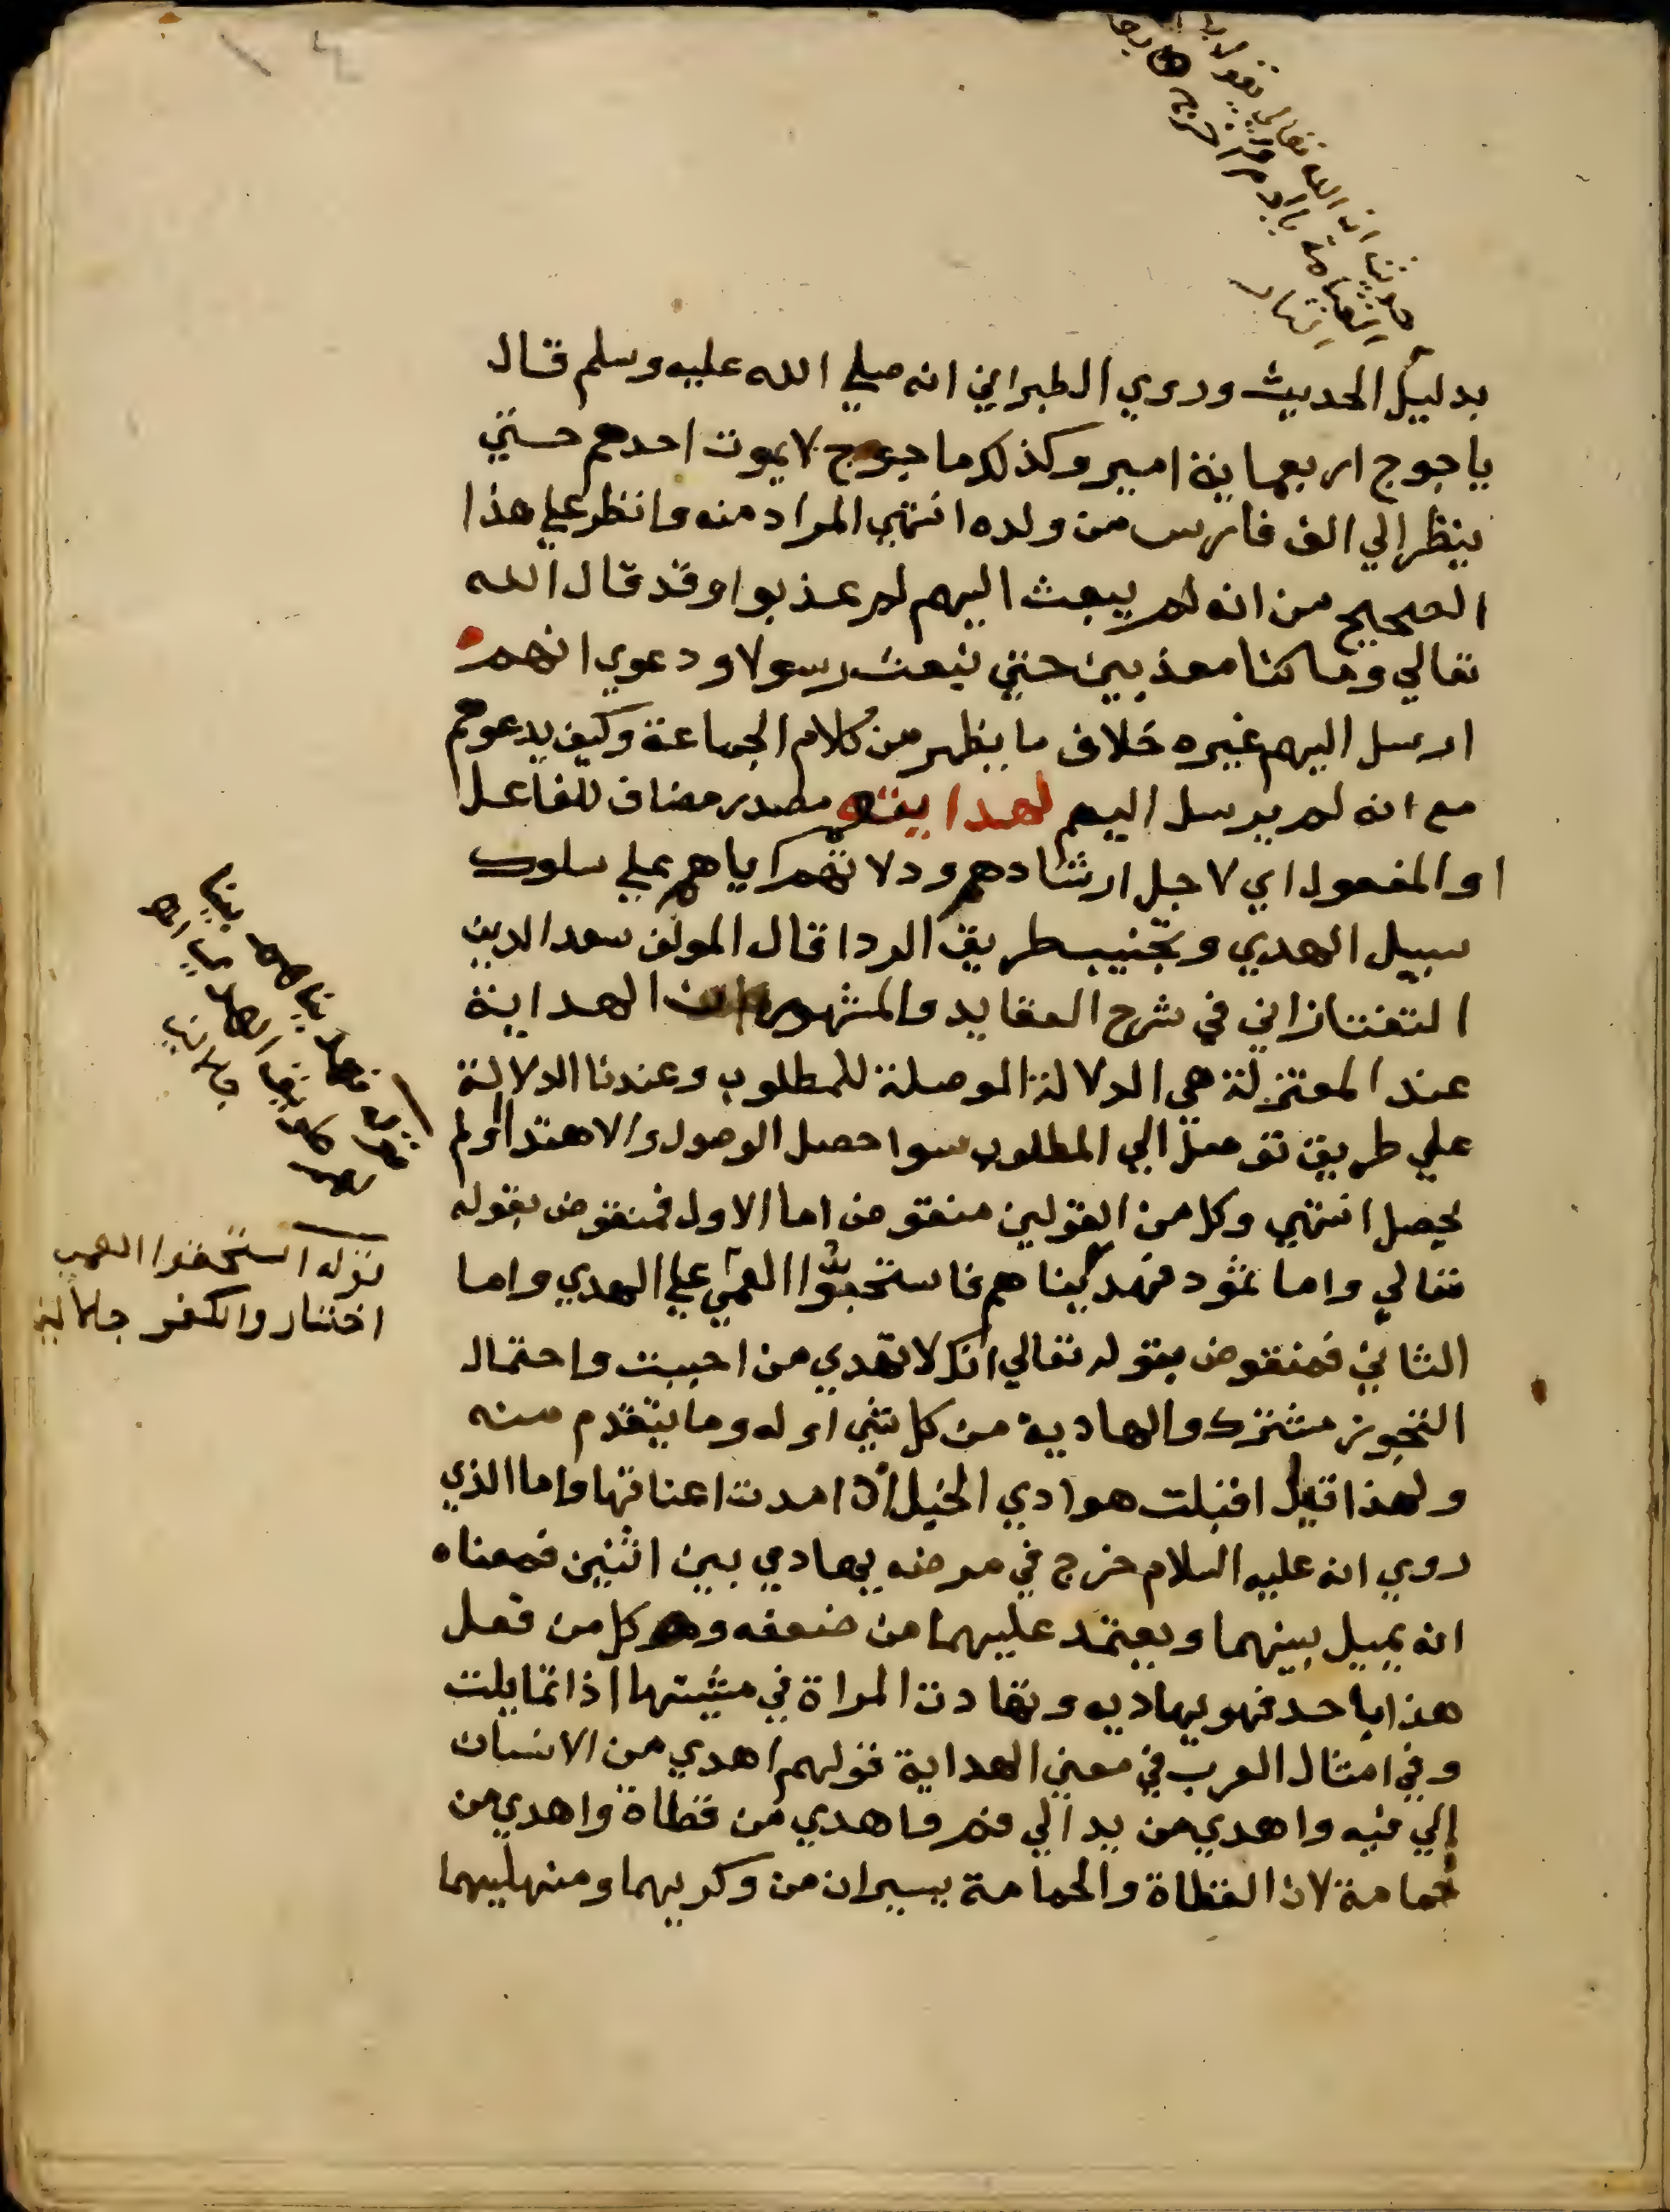 بدليل الحديث وروي الطبراني انه صلي الله عليه وسلم قال
ياجوج اربعماية امير وكذلك ماجوج لا يموت احدهم حتي
ينظر الي الف فارس من ولده انتهي المراد منه وانظر علي هذا
الصحيح من انه لم يبعث اليهم لم عذبوا وقد قال الله
تعالي وما كنا معذبين حتي نبعث رسولا ودعوي انهم
ارسل اليهم غيره خلاف ما يظهر من كلام الجماعة وكيف يدعوهم
مع انه لم يرسل اليهم لهدايتهم مصدر مضاف للفاعل
او المفعول اي لاجل ارشادهم ودلالتهم اياهم علي سلوك
سبيل الهدي وتجنيب طريق الردا قال المولف سعد الدين
التفتازاني في شرح العقايد والمشهور ان الهداية
عند المعتزلة هي الدلالة الموصلة للمطلوب وعندنا الدلالة
علي طريق توصل الي المطلوب سوا حصل الوصول والاهتدا او لم
يحصل انتهي وكل من القولين منقوض اما الاول فمنقوض بقوله
تعالي واما ثمود فهديناهم فاستحبوا العمي علي الهدي واما
الثاني فمنقوض بقوله تعالي انك لا تهدي من احببت واحتمال
التجويز مشترك والهادية من كل شي اوله وما يتقدم منه
ولهذا قيل اقبلت هوادي الخيل اذا مدت اعناقها واما الذي
روي انه عليه السلام خرج في مرضه يهادي بين اثنين فمعناه
انه يميل بينهما ويعتمد عليهما من ضعفه وكل من فعل
هذا باحد فهو يهاديه وتهادت المراة في مشيتها اذا تمايلت
وفي امثال العرب في معني الهداية قولهم اهدي من الانسان
الي فيه واهدي من يد الي فم واهدي من قطاة واهدي من
حمامة لان القطاة والحمامة يسيران من وكريهما ومنهليهما
قوله استحبوا العمي
اختاروا الكفر جلالين